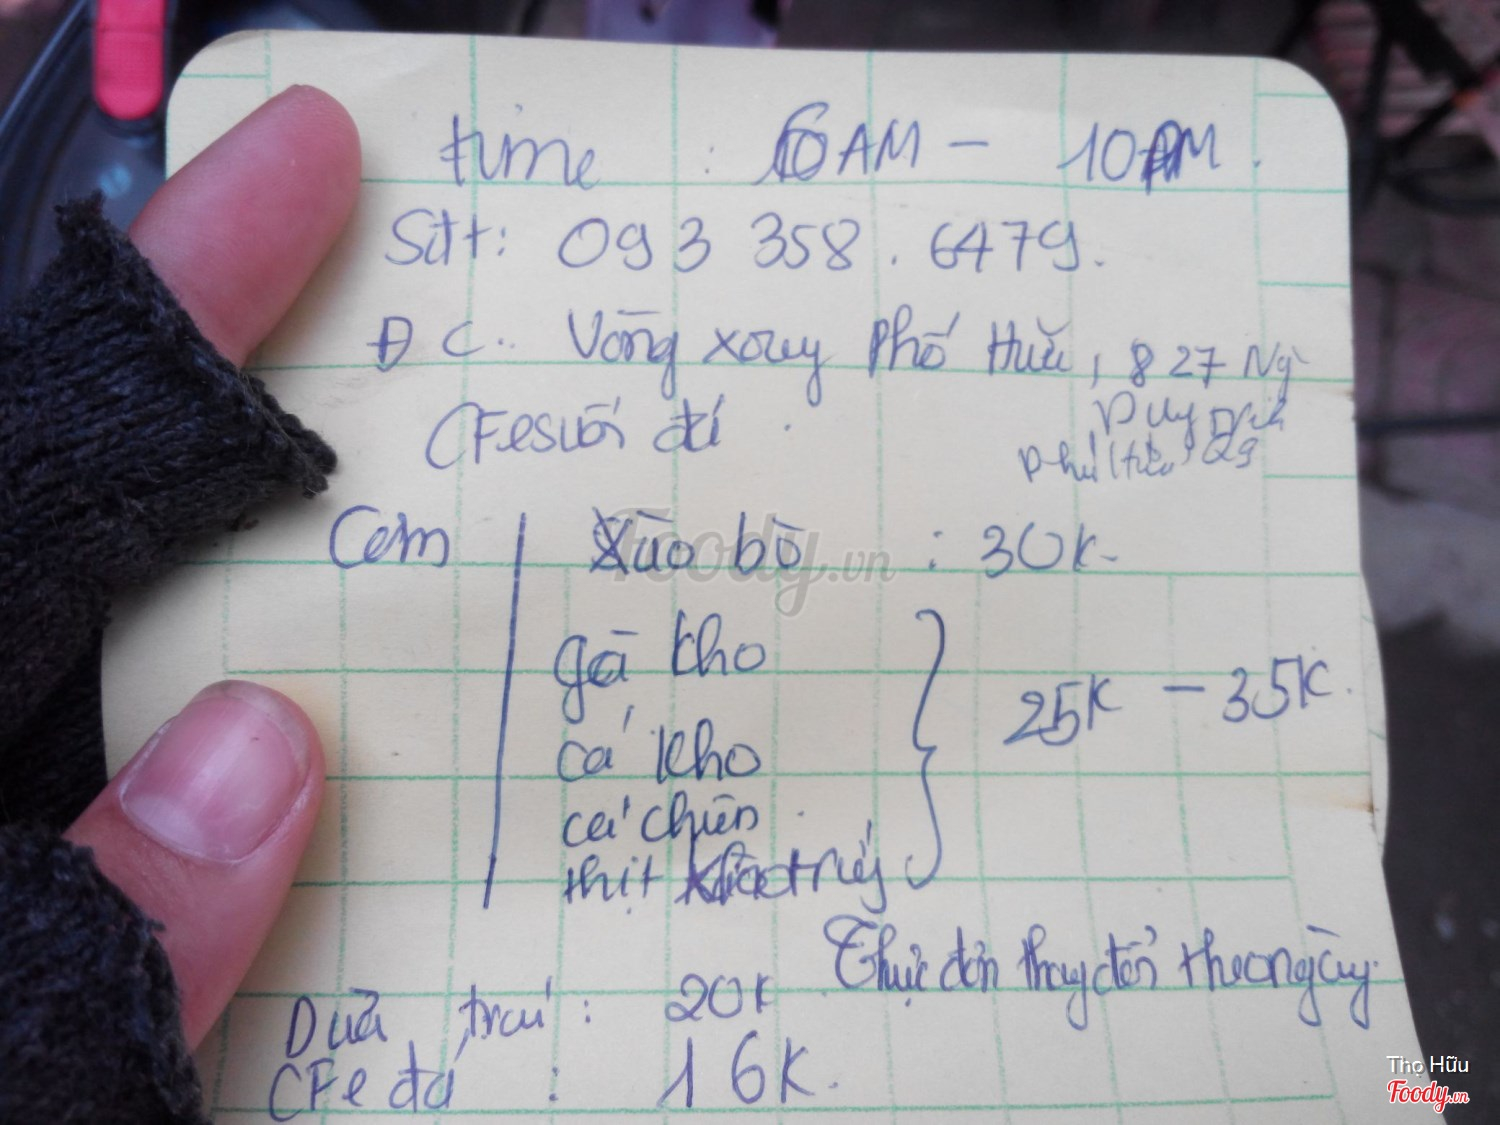 time : 6AM - 10PM.
Sđt: 093 358.6479.
ĐC.. Vòng xoay Phố Hữu, 827 Ng
CFe suối đá .
Cơm
Xào bò : 30K
gà kho
cá kho
25K - 35K.
cá chiên
thịt trứng
Thực đơn thay đổi theo ngày.
Dừa trái : 20K
CFe đá : 16K.
Foody.vn
Thọ Hữu
Foody.vn